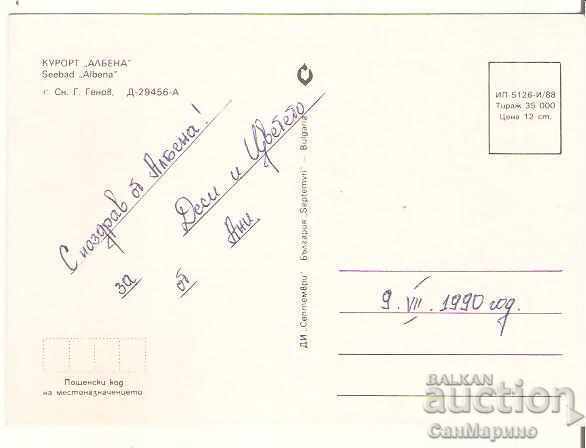 КУРОРТ „АЛБЕНА“
Seebad „Albena“
Сн. Г. Генов. Д-29456-А
С поздрав от Албена!
за Деси и Цветето
от Ани
ДИ „Септември“ България "Septemvri" — Bulgaria
ИП 5126-И/88
Тираж 35 000
Цена 12 ст.
9. VII. 1990 год.
Пощенски код
на местоназначението
BALKAN
auction
СанМарино